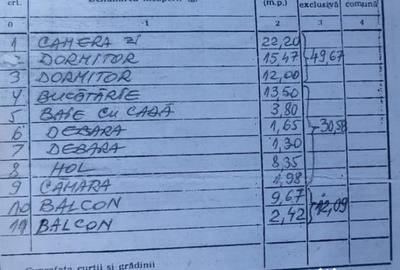 crt. Denumirea încăperii (m.p.) exclusivă comună
0 1 2 3 4
1 CAMERA ZI 22,20
2 DORMITOR 15,47 49,67
3 DORMITOR 12,00
4 BUCĂTĂRIE 13,50
5 BAIE CU CADĂ 3,80
6 DEBARA 1,65 30,58
7 DEBARA 1,30
8 HOL 8,35
9 CĂMARA 1,98
10 BALCON 9,67 12,09
11 BALCON 2,42
Suprafața curții și grădinii